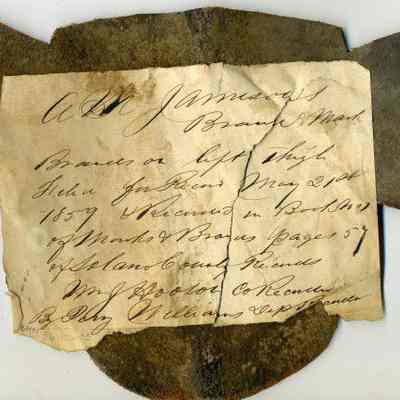 A M Jameson's
Brand & Mark
Brands on left Thigh
Filed for Record May 21st
1859 & Recorded in Book No 1
of Marks & Brands Pages 57
of Solano County Records
Wm J Co Recorder
By Williams Dep Recorder